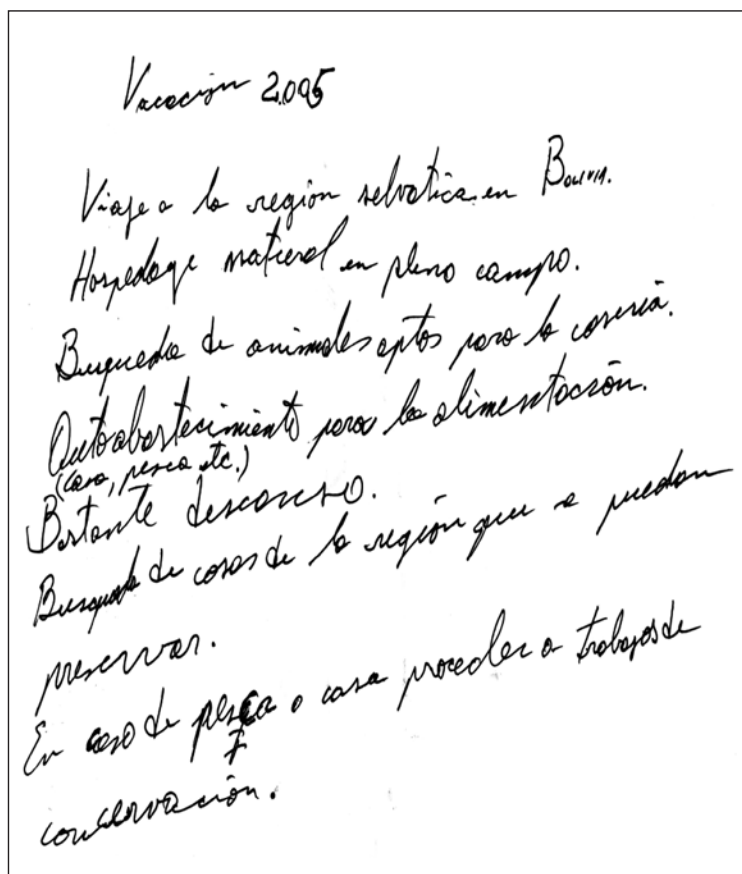 Vacación 2.005
Viaje a la región selvatica en Bolivia.
Hospedage natural en pleno campo.
Busqueda de animales aptos para la caseria.
Autoabastecimiento para la alimentación.
(casa, pesca etc.)
Bastante descanso.
Busqueda de cosas de la región que se puedan
preservar.
En caso de pesca o casa proceder a trabajos de
conservación.